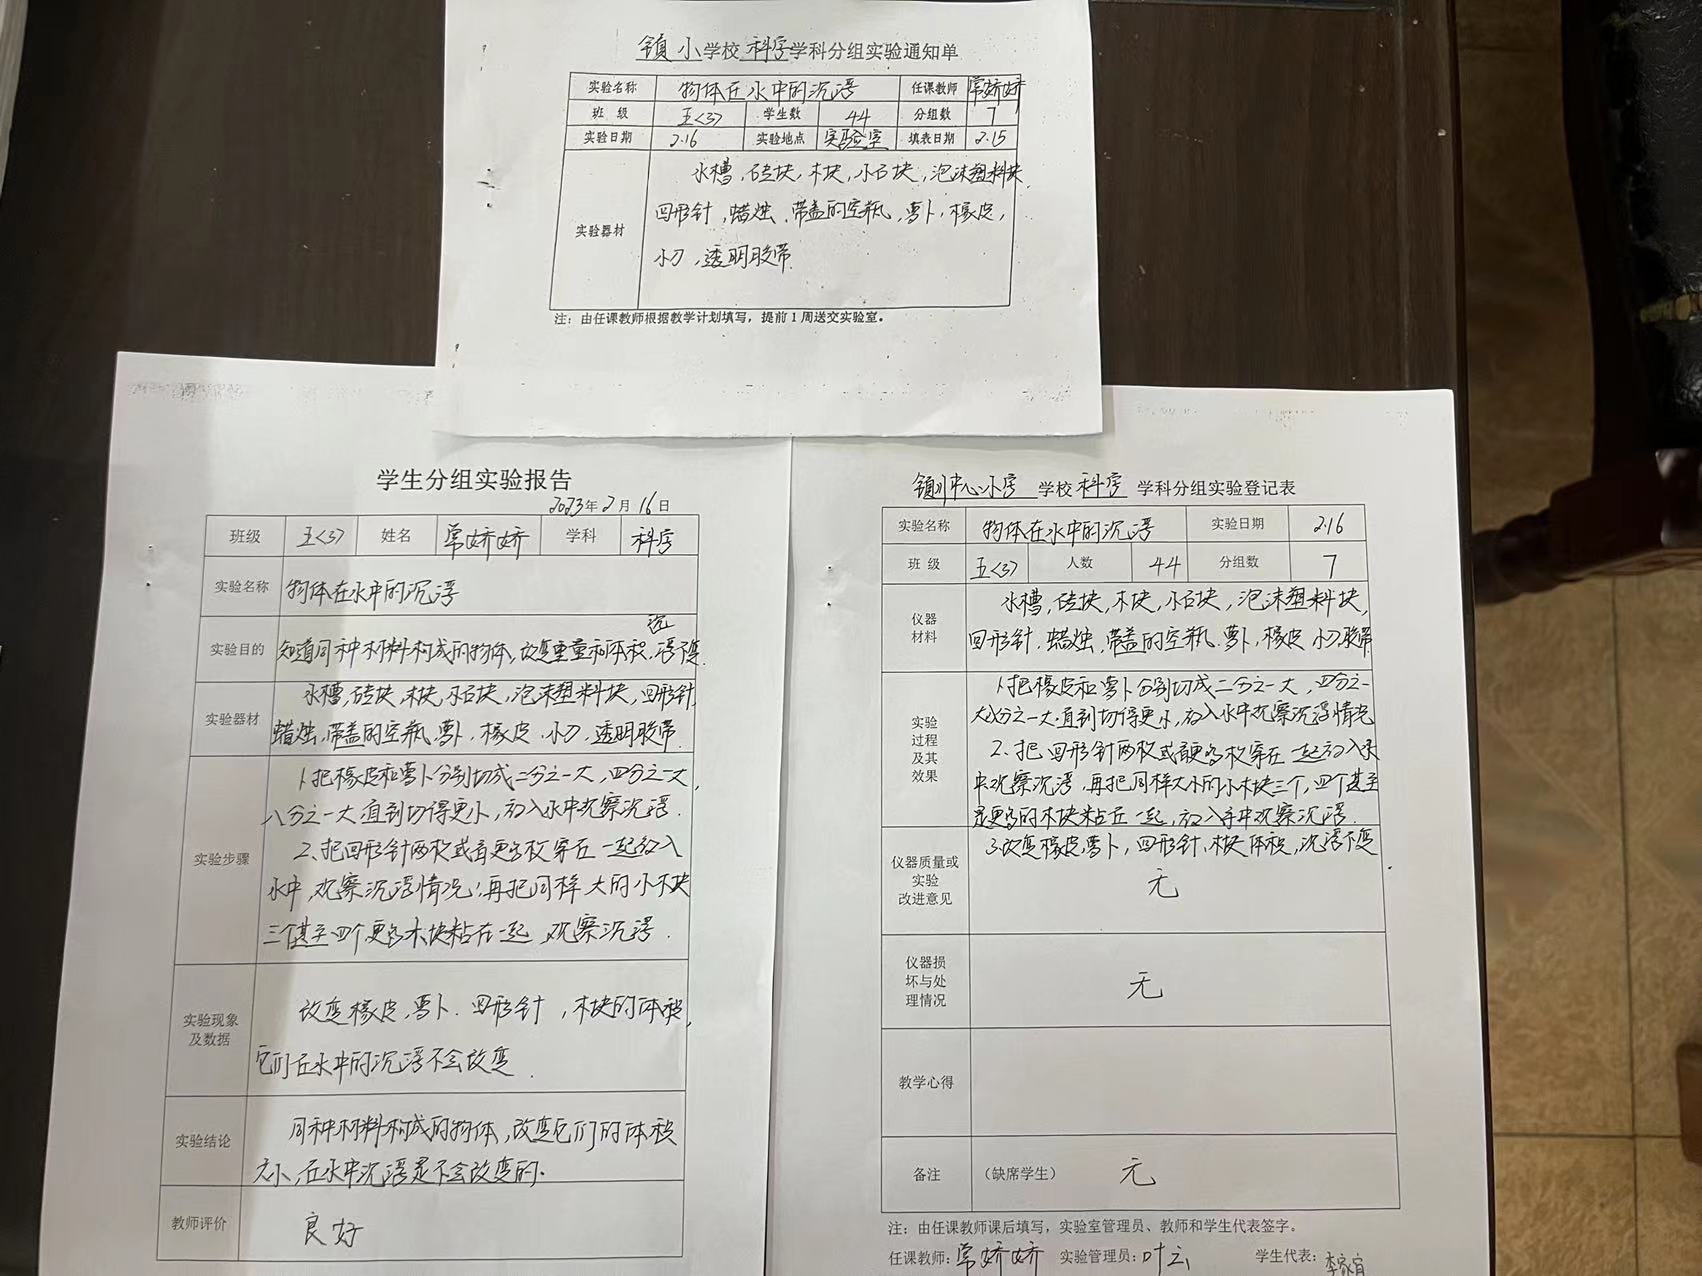 镇小学校 科学学科分组实验通知单
实验名称 物体在水中的沉浮 任课教师 常娇娇
班 级 五<3> 学生数 44 分组数 7
实验日期 2.16 实验地点 实验室 填表日期 2.15
实验器材
水槽，砖块，木块，小石块，泡沫塑料块，
回形针，蜡烛、带盖的空瓶，萝卜，橡皮，
小刀，透明胶带
注：由任课教师根据教学计划填写，提前1周送交实验室。
学生分组实验报告
2023年2月16日
班级 五<3> 姓名 常娇娇 学科 科学
实验名称 物体在水中的沉浮
实验目的 知道同种材料构成的物体，改变重量和体积，沉浮不变.
实验器材
水槽，砖块，木块，小石块，泡沫塑料块，回形针，
蜡烛，带盖的空瓶，萝卜，橡皮、小刀、透明胶带
实验步骤
1、把橡皮和萝卜分别切成二分之一大，四分之一大，
八分之一大直到切得更小，放入水中观察沉浮.
2、把回形针两枚或者更多枚穿在一起放入
水中，观察沉浮情况，再把同样大的小木块
三个甚至四个更多木块粘在一起，观察沉浮.
实验现象
及数据
改变橡皮，萝卜．回形针，木块的体积，
它们在水中的沉浮不会改变.
实验结论
同种材料构成的物体，改变它们的体积
大小，在水中沉浮是不会改变的.
教师评价 良好
镇川中心小学 学校 科学 学科分组实验登记表
实验名称 物体在水中的沉浮 实验日期 2.16
班 级 五<3> 人数 44 分组数 7
仪器
材料
水槽，砖块，木块，小石块，泡沫塑料块，
回形针．蜡烛，带盖的空瓶、萝卜，橡皮 小刀胶带
实验
过程
及其
效果
1、把橡皮和萝卜分别切成二分之一大，四分之一
大八分之一大.直到切得更小，放入水中观察沉浮情况
2、把回形针两枚或更多枚穿在一起放入水
中观察沉浮，再把同样大小的小木块三个，四个甚至
是更多的木块粘在一起，放入手中观察沉浮.
3改变橡皮，萝卜，回形针，木块体积，沉浮不变
仪器质量或
实验
改进意见
无
仪器损
坏与处
理情况
无
教学心得
备注 （缺席学生） 无
注：由任课教师课后填写，实验室管理员、教师和学生代表签字。
任课教师：常娇娇 实验管理员：叶云 学生代表：